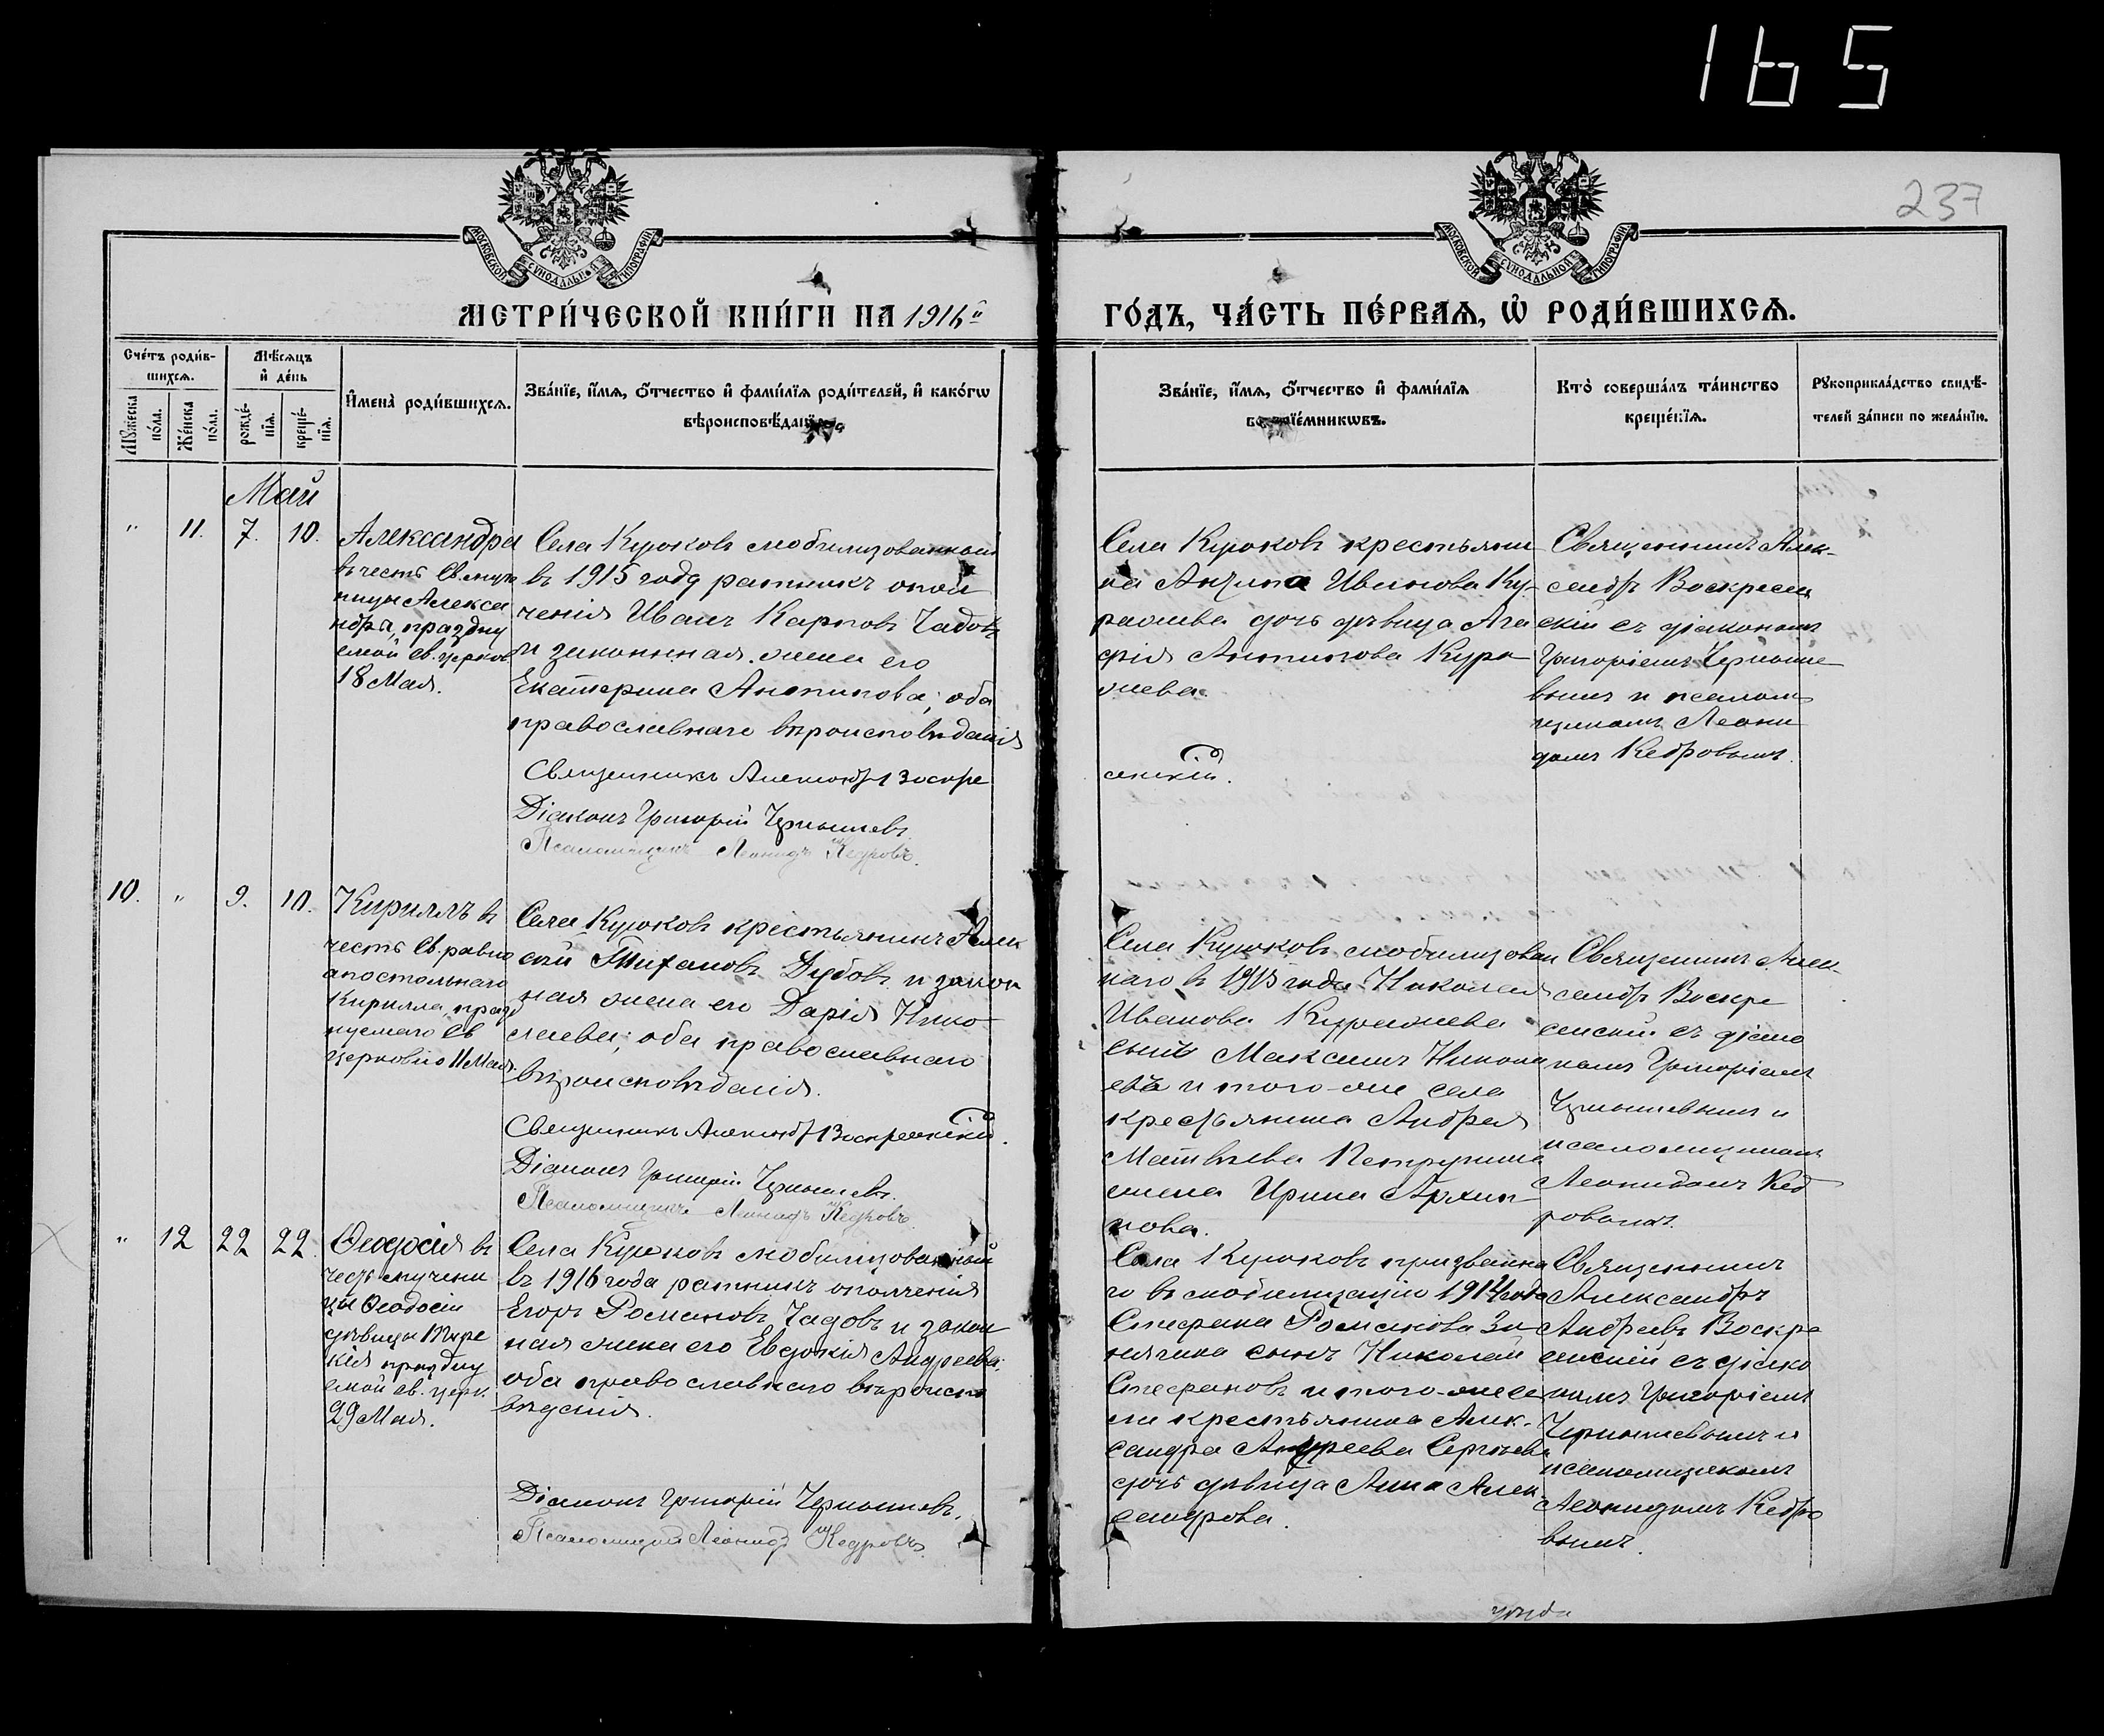 165
237
МОСКОВСКОЙ СѴНОДАЛЬНОЙ ТИПОГРАФІИ
МОСКОВСКОЙ СѴНОДАЛЬНОЙ ТИПОГРАФІИ
МЕТРИ́ЧЕСКОЙ КНИ́ГИ НА 1916й
ГО́ДЪ, ЧА́СТЬ ПЕ́РВАѦ, Ѡ҆ РОДИ́ВШИХСѦ.
Сче́тъ роди́в-
шихсѧ.
Мꙋ́жеска по́ла.
Же́нска по́ла.
Мѣ́сѧцъ
и҆ де́нь
рожде́-
нїѧ.
креще́-
нїѧ.
И҆мена̀ роди́вшихсѧ.
Зва́нїе, и҆́мѧ, ѻ҆́тчество и҆ фами́лїѧ роди́телей, и҆ како́гѡ
вѣроисповѣ́данїѧ.
Зва́нїе, и҆́мѧ, ѻ҆́тчество и҆ фами́лїѧ
воспрїе́мникѡвъ.
Кто̀ соверша́лъ та́инство
креще́нїѧ.
Рꙋкоприкла́дство свидѣ́-
телей за́писи по жела́нїю.
Май
" 11. 7. 10.
Александра
въ честь Св. муче
ницы Алекса
ндра, праздну
емой св. церков.
18 Мая.
Села Курюковъ мобилизованный
въ 1915 году ратникъ опол
ченія Иванъ Карповъ Чадовъ
и законная жена его
Екатерина Антипова; оба
православнаго вѣроисповѣданія
Священникъ Александръ Воскре
сенскій.
Діаконъ Григорій Чернышевъ.
Псаломщикъ Леонидъ Кедровъ.
Села Курюковъ крестьяни
на Антипа Иванова Ку-
ражева дочь дѣвица Ага
фія Антипова Кура
жева.
Священникъ Алек-
сандръ Воскресен
скій съ діакономъ
Григоріемъ Черныше
вымъ и псалом
щикомъ Леони
домъ Кедровымъ.
10. " 9. 10.
Кириллъ въ
честь Св. равно
апостольнаго
Кирилла, празд
нуемаго Св
церковію 11 Мая.
Села Курюковъ крестьянинъ Алек
сѣй Тихановъ Дубовъ и закон
ная жена его Дарія Нико
лаева; оба православнаго
вѣроисповѣданія.
Священникъ Александръ Воскресенскій.
Діаконъ Григорій Чернышевъ.
Псаломщикъ Леонидъ Кедровъ.
Села Курюковъ мобилизован
наго въ 1915 года Николая
Иванова Куражева
сынъ Максимъ Никола
евъ и того-же села
крестьянина Андрея
Матвѣева Петрунина
жена Ирина Архип
пова.
Священникъ Алек-
сандръ Воскре
сенскій съ діако
номъ Григоріемъ
Чернышевымъ и
псаломщикомъ
Леонидомъ Кед
ровымъ.
" 12 22 22.
Ѳеодосія въ
честь мучени
цы Ѳеодосіи
дѣвицы Тирс
кія праздну
емой св. церк.
29 Мая.
Села Курюковъ мобилизованный
въ 1916 года ратникъ ополченія
Егоръ Романовъ Чадовъ и закон
ная жена его Евдокія Андреева;
оба православнаго вѣроиспо
вѣданія.
Діаконъ Григорій Чернышевъ.
Псаломщикъ Леонидъ Кедровъ.
Села Курюковъ призванна
го въ мобилизацію 1914 года
Стефана Романова
сынъ Николай
Стефановъ и того-же се
ла крестьянина Алек-
сандра Андреева Сергѣева
дочь дѣвица Анна Алек-
сандрова.
Священникъ
Александръ
Андреевъ Воскре
сенскій съ діако
номъ Григоріемъ
Чернышевымъ и
псаломщикомъ
Леонидомъ Кедро
вымъ.
уѣзда